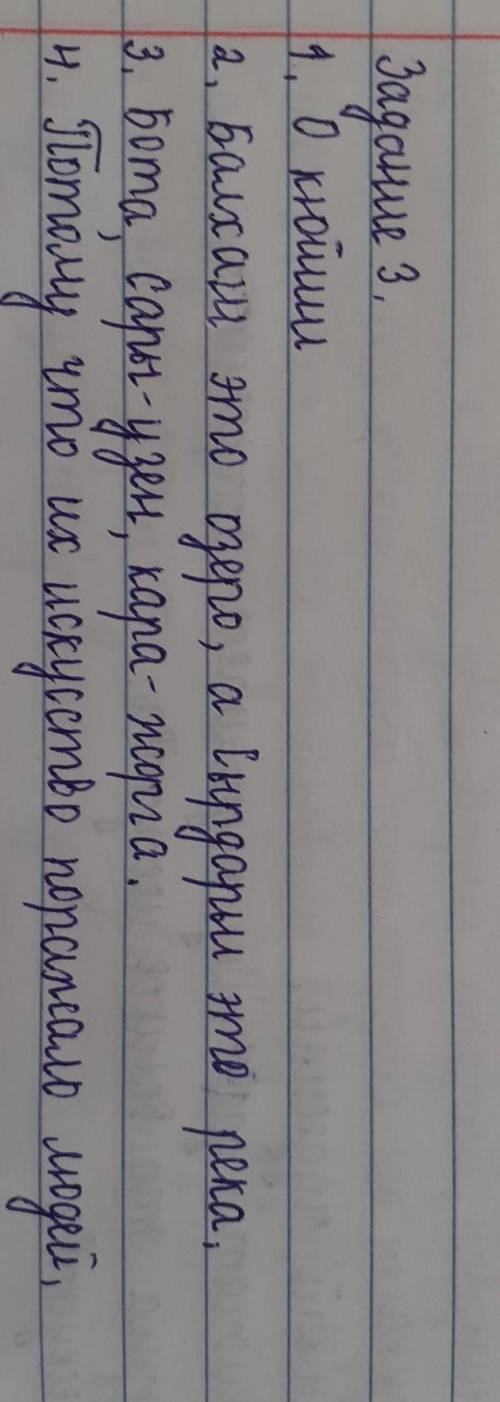 Задание 3.
1. О кюйши
2. Балхаш это озеро, а Сырдарыя это река.
3. Бота, Сары-узен, кара-жорга.
4. Потому что их искусство поражало людей,